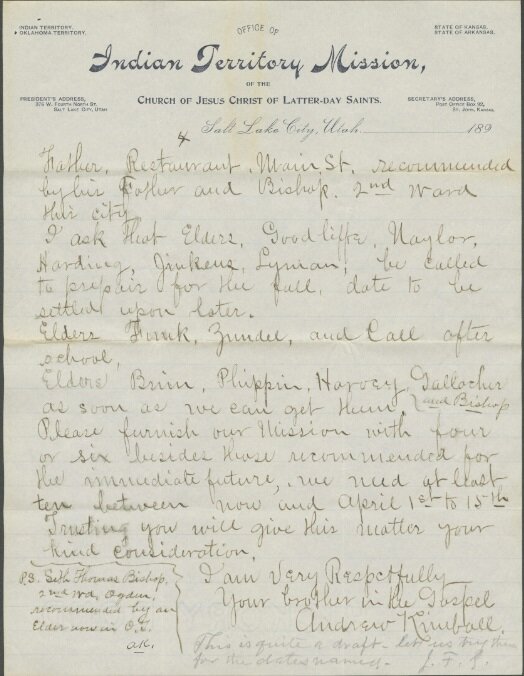 INDIAN TERRITORY.
OKLAHOMA TERRITORY.
OFFICE OF
STATE OF KANSAS.
STATE OF ARKANSAS.
Indian Territory Mission,
OF THE
CHURCH OF JESUS CHRIST OF LATTER-DAY SAINTS.
PRESIDENT'S ADDRESS,
375 W. FOURTH NORTH ST.
SALT LAKE CITY, UTAH
SECRETARY'S ADDRESS,
POST OFFICE BOX 92,
ST. JOHN, KANSAS.
Salt Lake City, Utah 189
4
Father, Restaurant, Main St. recommended
by his Father and Bishop. 2nd Ward
this city,
I ask that Elders, Goodliffe, Naylor,
Harding, Jinkens, Lyman, be called
to prepair for the fall, date to be
settled upon later.
Elders Funk, Zundel, and Call after
school,
Elders Brim, Phippin, Harvey, Gallacher
and Bishop
as soon as we can get them.
Please furnish our Mission with four
or six besides those recommended for
the immediate future, we need at least
ten between now and April 1st to 15th
Trusting you will give this matter your
kind consideration,
I am Very Respectfully
Your brother in the Gospel
Andrew Kimball.
P.S. Seth Thomas Bishop,
2nd Wd, Ogden,
recommended by an
Elder now in
This is quite a draft - let us try them
for the dates named. J. F. S.